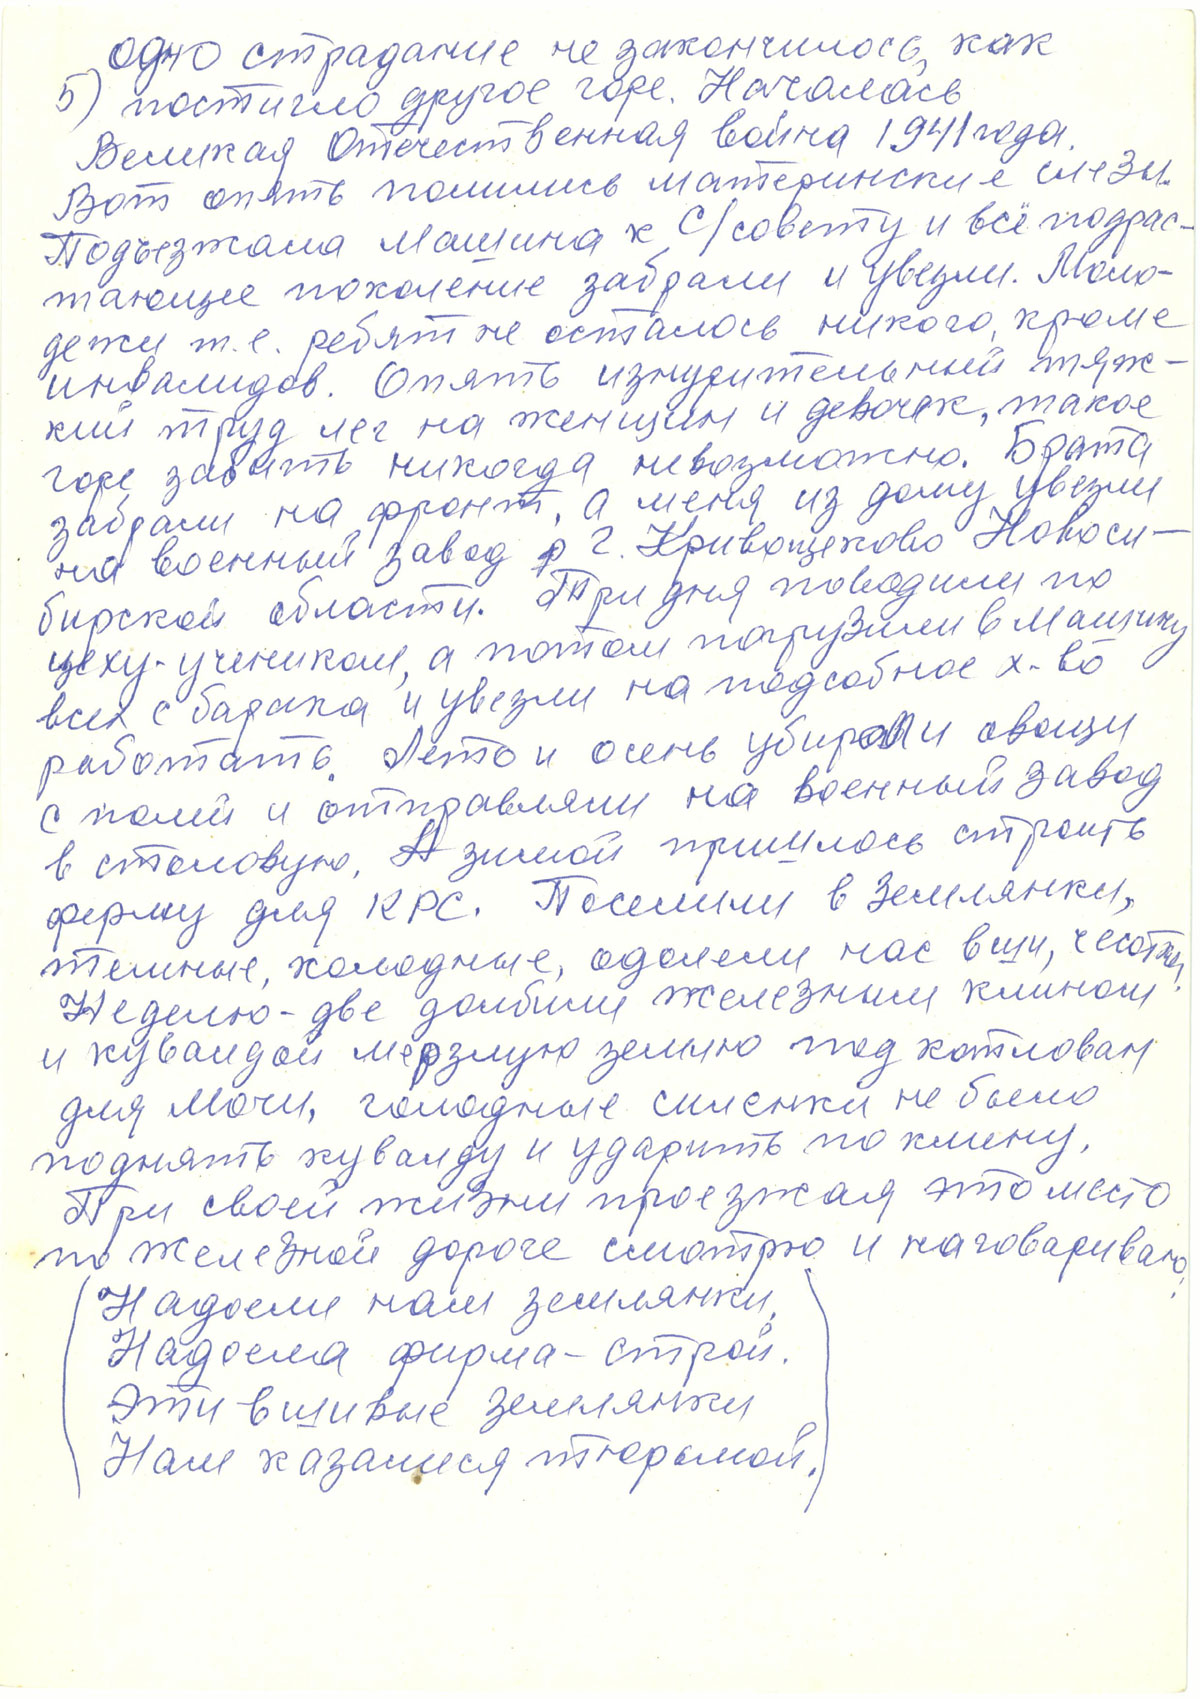 одно страдание не закончилось, как
5) постигло другое горе. Началась
Великая Отечественная война 1941 года.
Вот опять полились материнские слезы.
Подъезжала машина к С/совету и всё подрас-
тающее поколение забрали и увезли. Моло-
дежи т.е. ребят не осталось никого, кроме
инвалидов. Опять изнурительный тяж-
кий труд лег на женщин и девочек, такое
горе забыть никогда невозможно. Брата
забрали на фронт, а меня из дому увезли
на военный завод г. Кривощеково Новоси-
бирской области. Три дня поводили по
цеху-учеником, а потом погрузили в машину
всех с барака и увезли на подсобное х-во
работать. Лето и осень убирали овощи
с полей и отправляли на военный завод
в столовую, А зимой пришлось строить
ферму для КРС. Поселили в землянки,
темные, холодные, одолели нас вши, чесотка.
Неделю-две долбили железным клином
и кувалдой мерзлую землю под котлован
для мочи, голодные силенки не было
поднять кувалду и ударить по клину.
При своей жизни проезжая это место
по железной дороге смотрю и наговариваю:
(Надоели нам землянки,
Надоела фирма-строй.
Эти вшивые землянки
Нам казалися тюрьмой.)